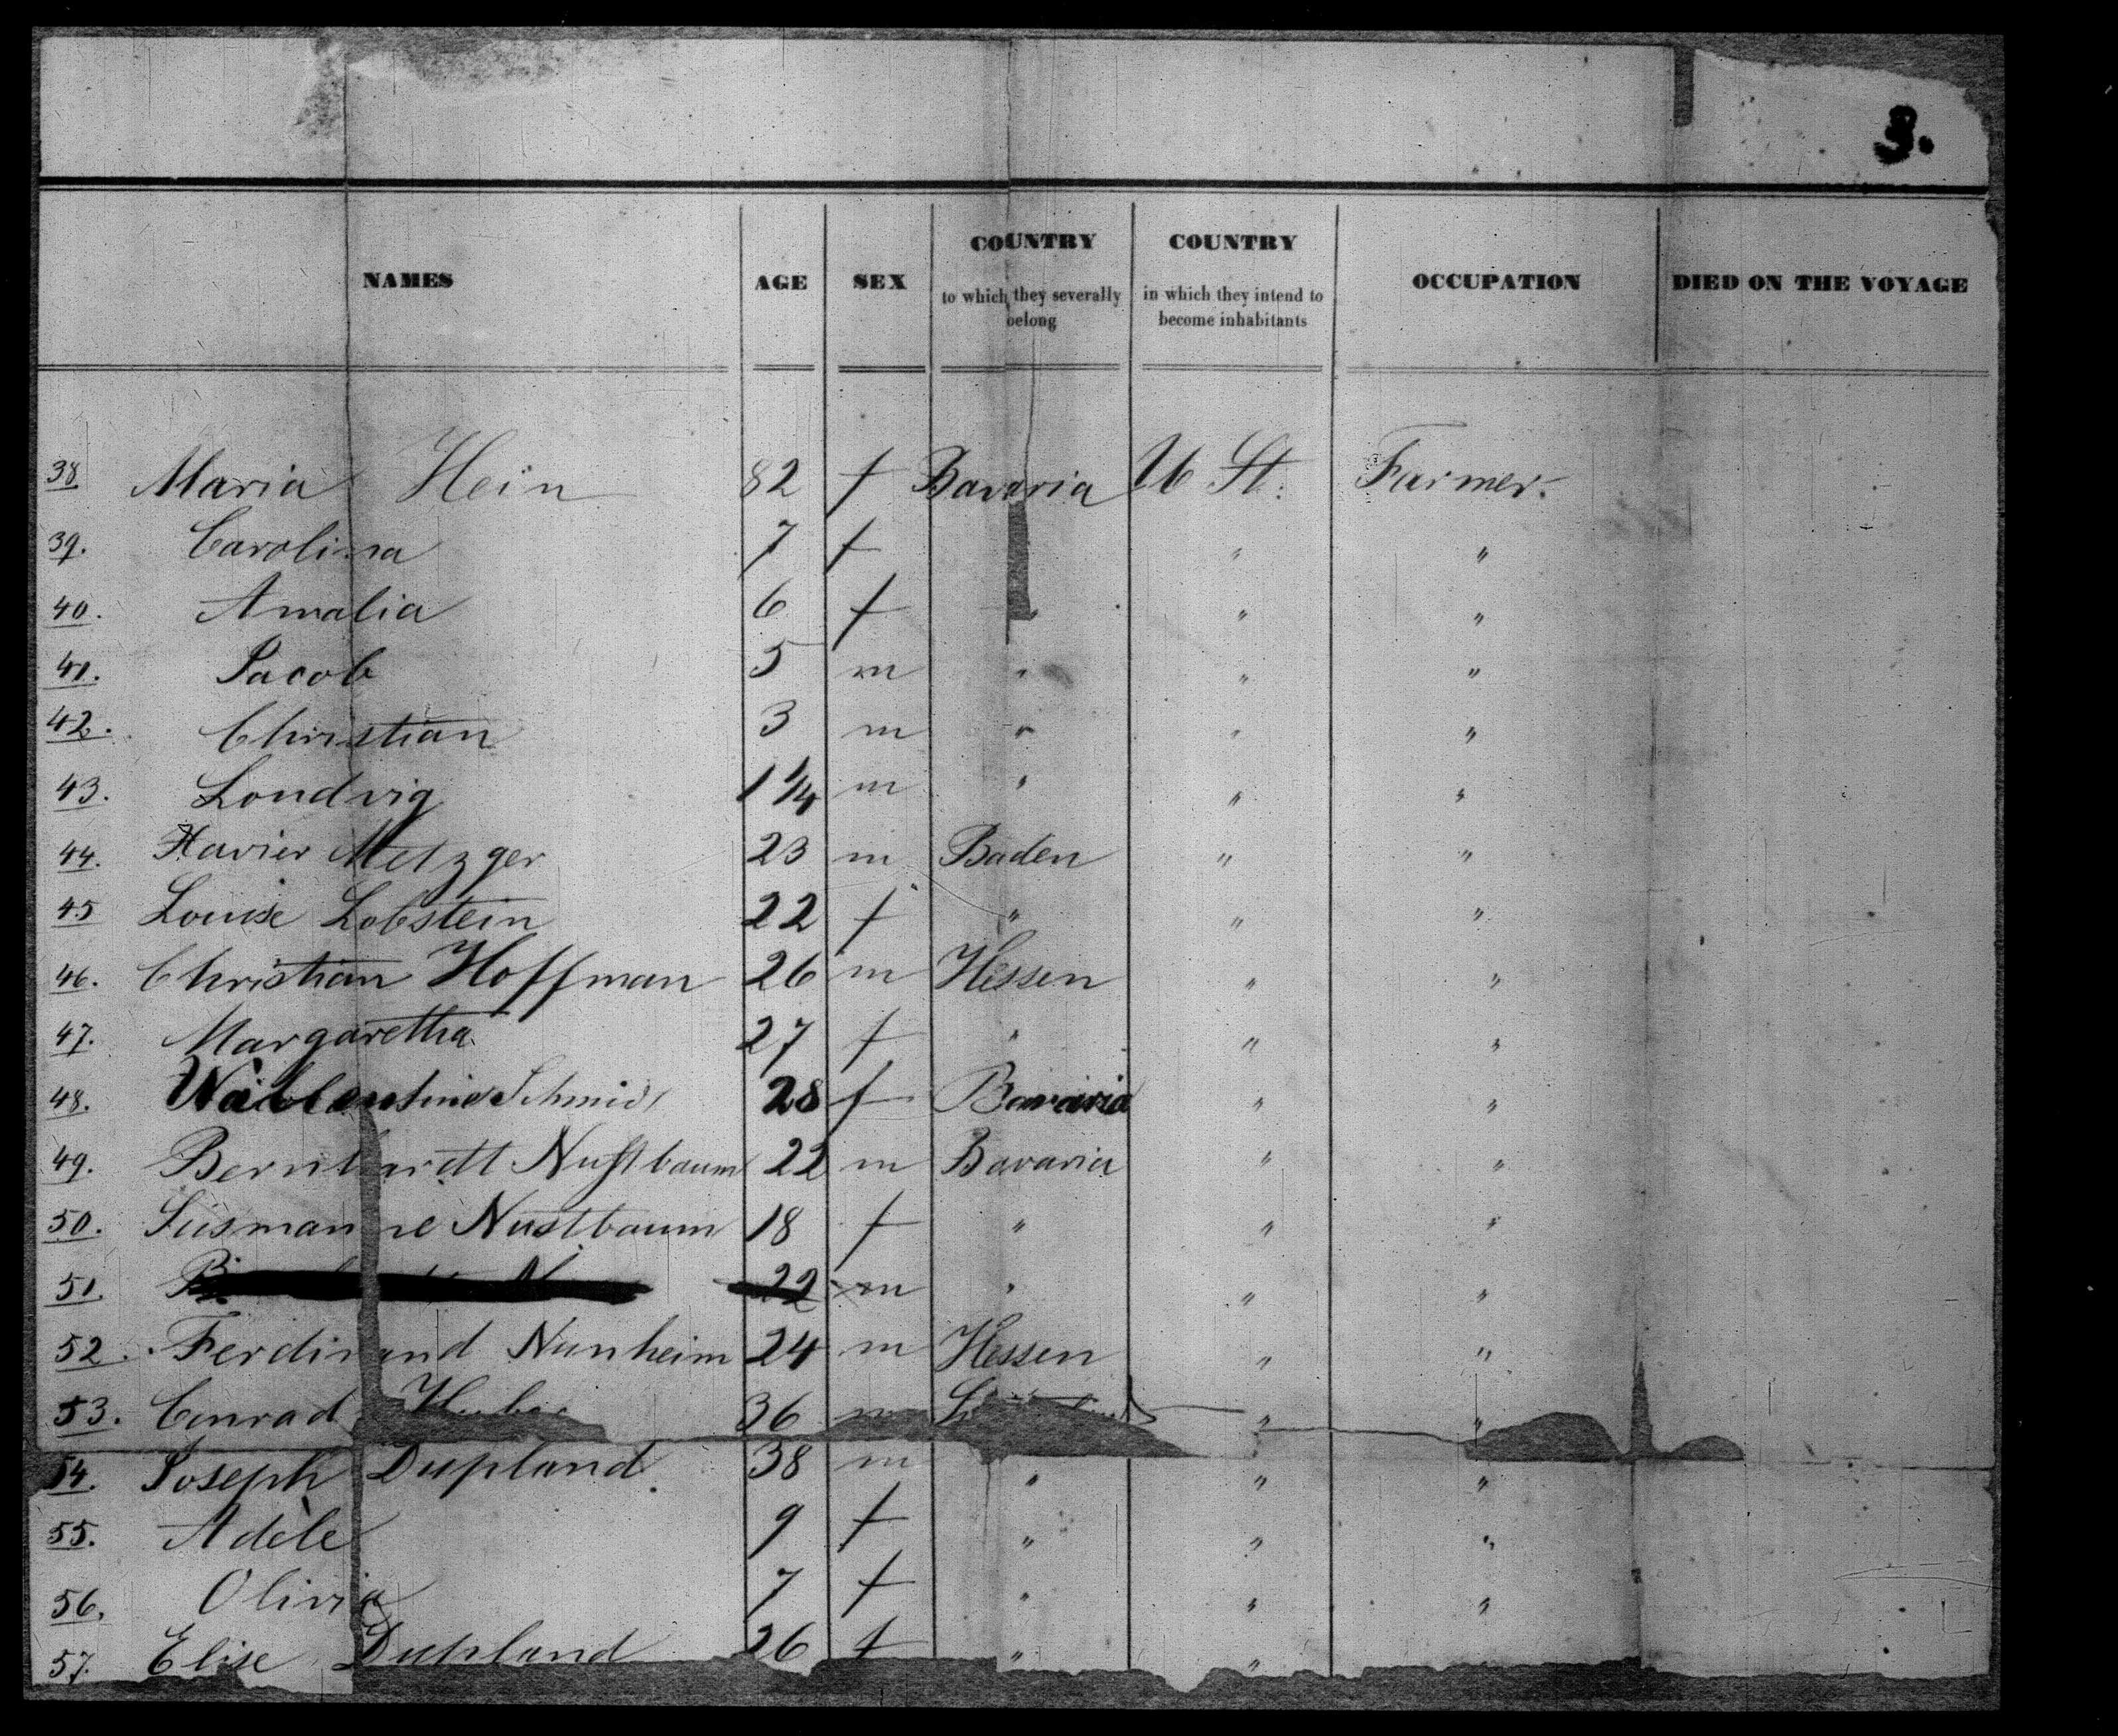 3.
NAMES AGE SEX COUNTRY to which they severally belong COUNTRY in which they intend to become inhabitants OCCUPATION DIED ON THE VOYAGE
38 Maria Hein 32 f Bavaria U St. Farmer.
39. Carolina 7 f " "
40. Amalia 6 f " " "
41. Jacob 5 m " " "
42. Christian 3 m " " "
43. Loudvig 1 1/4 m " " "
44. Xavier Metzger 23 m Baden " "
45 Louise Lobstein 22 f " " "
46. Christian Hoffman 26 m Hessen " "
47. Margaretha 27 f " " "
48. Schmid 28 f Bavaria " "
49. Bernhardt Nustbaum 22 m Bavaria " "
50. Susmanne Nustbaum 18 f " " "
51. 22 m " " "
52. Ferdinand Nunheim 24 m Hessen " "
53. Conrad Huber 36 m " "
54. Joseph Dupland. 38 m " " "
55. Adèle 9 f " " "
56. Olivia 7 f " " "
57. Elise Dupland 26 f " "